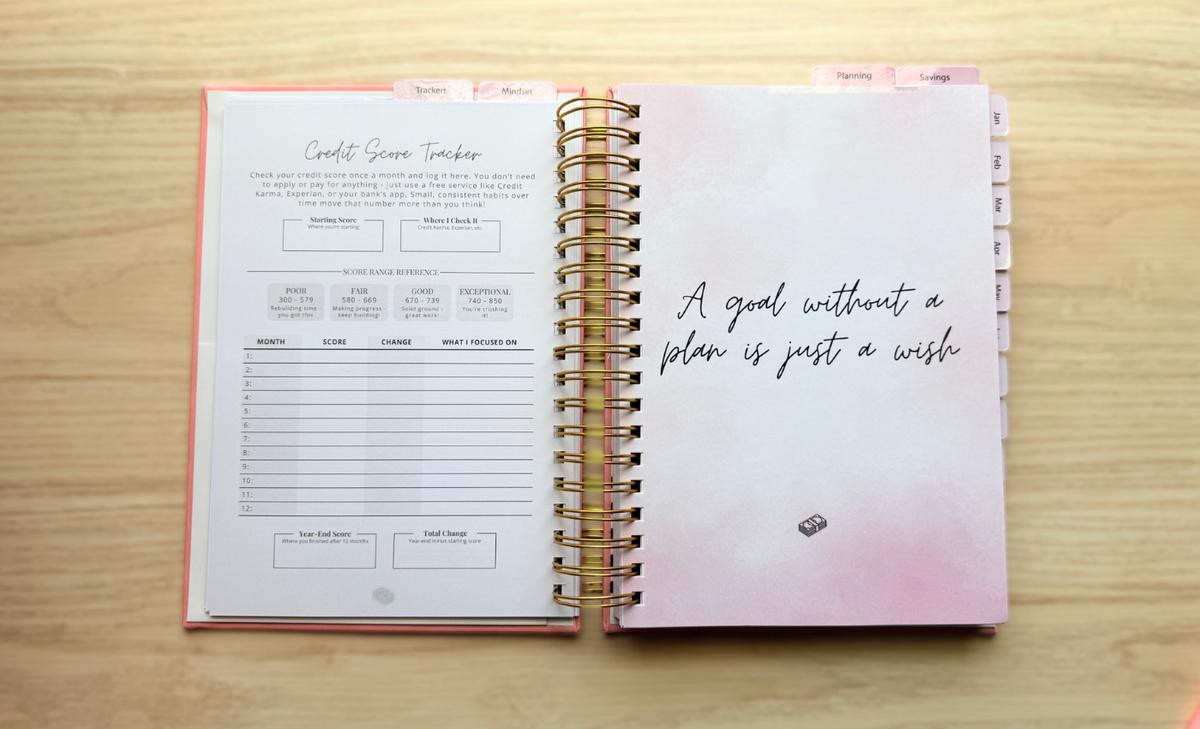 Trackert
Mindset
Credit Score Tracker
Check your credit score once a month and log it here. You don't need
to apply or pay for anything - just use a free service like Credit
Karma, Experian, or your bank's app. Small, consistent habits over
time move that number more than you think!
Starting Score
Where you're starting
Where I Check It
Credit Karma, Experian, etc
SCORE RANGE REFERENCE
POOR
300 - 579
Rebuilding time -
you got this
FAIR
580 - 669
Making progress -
keep building!
GOOD
670 - 739
Solid ground -
great work!
EXCEPTIONAL
740 - 850
You're crushing
it!
MONTH SCORE CHANGE WHAT I FOCUSED ON
1:
2:
3:
4:
5:
6:
7:
8:
9:
10:
11:
12:
Year-End Score
Where you finished after 12 months
Total Change
Year-end minus starting score
Planning
Savings
A goal without a
plan is just a wish
Jan
Feb
Mar
Apr
May